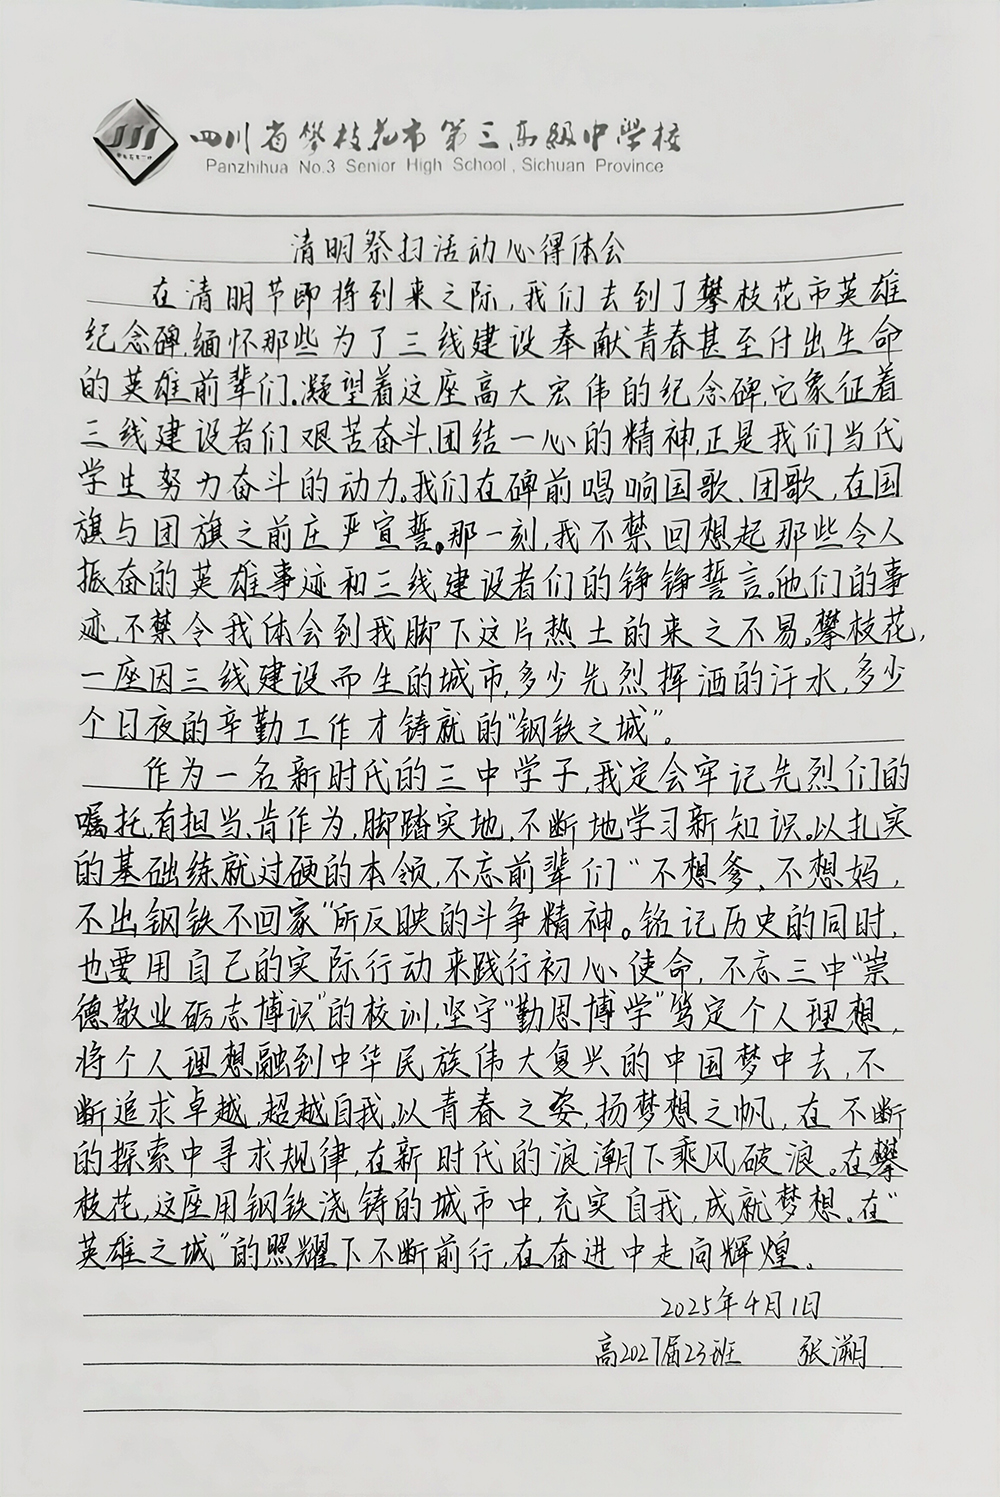 四川省攀枝花市第三高级中学校
Panzhihua No.3 Senior High School, Sichuan Province
清明祭扫活动心得体会
在清明节即将到来之际,我们去到了攀枝花市英雄
纪念碑,缅怀那些为了三线建设奉献青春甚至付出生命
的英雄前辈们。凝望着这座高大宏伟的纪念碑,它象征着
三线建设者们艰苦奋斗、团结一心的精神,正是我们当代
学生努力奋斗的动力。我们在碑前唱响国歌、团歌,在国
旗与团旗之前庄严宣誓。那一刻,我不禁回想起那些令人
振奋的英雄事迹和三线建设者们的铮铮誓言。他们的事
迹,不禁令我体会到我脚下这片热土的来之不易。攀枝花,
一座因三线建设而生的城市,多少先烈挥洒的汗水,多少
个日夜的辛勤工作才铸就的“钢铁之城”。
作为一名新时代的三中学子,我定会牢记先烈们的
嘱托,有担当、肯作为,脚踏实地,不断地学习新知识。以扎实
的基础练就过硬的本领,不忘前辈们“不想爹、不想妈,
不出钢铁不回家”所反映的斗争精神。铭记历史的同时,
也要用自己的实际行动来践行初心使命,不忘三中“崇
德敬业砺志博识”的校训,坚守“勤恩博学”笃定个人理想,
将个人理想融到中华民族伟大复兴的中国梦中去,不
断追求卓越,超越自我。以青春之姿,扬梦想之帆,在不断
的探索中寻求规律,在新时代的浪潮下乘风破浪。在攀
枝花,这座用钢铁浇铸的城市中,充实自我,成就梦想。在“
英雄之城”的照耀下不断前行,在奋进中走向辉煌。
2025年4月1日
高2027届23班 张溯